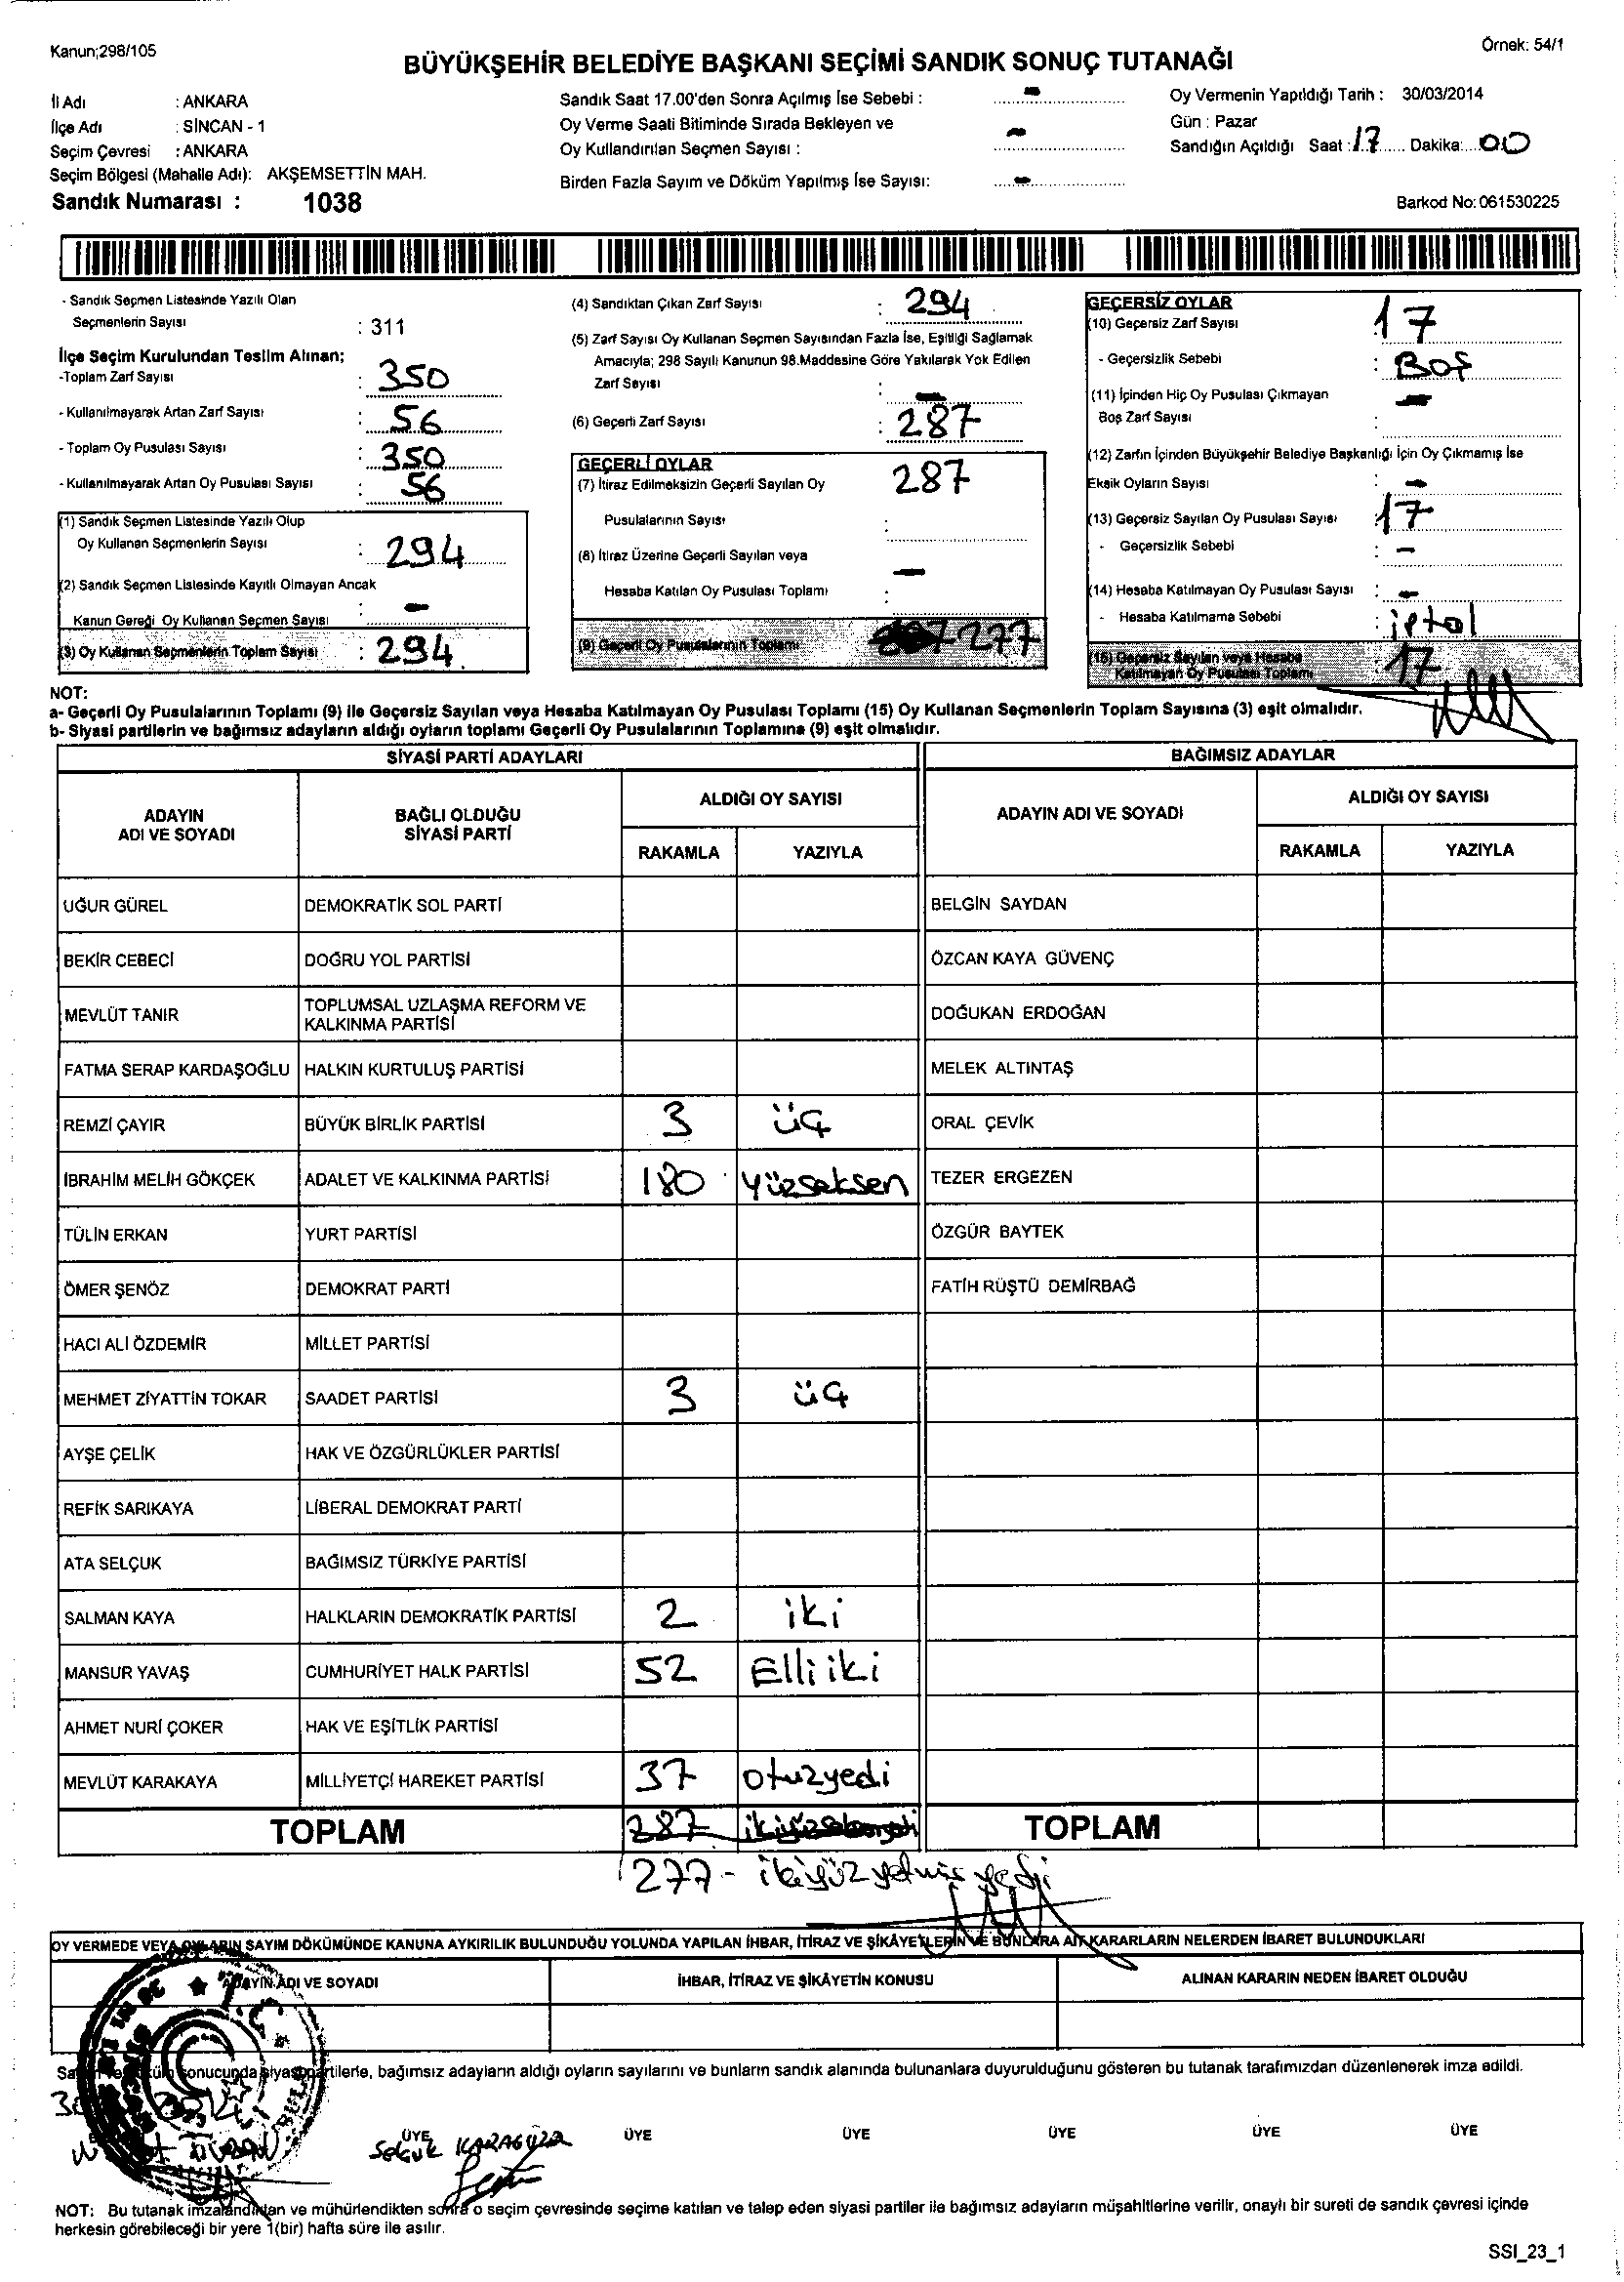 Kanun;298/105
Örnek: 54/1
BÜYÜKŞEHİR BELEDİYE BAŞKANI SEÇİMİ SANDIK SONUÇ TUTANAĞI
İl Adı : ANKARA
İlçe Adı : SİNCAN - 1
Seçim Çevresi : ANKARA
Seçim Bölgesi (Mahalle Adı): AKŞEMSETTİN MAH.
Sandık Numarası : 1038
Sandık Saat 17.00'den Sonra Açılmış İse Sebebi : -
Oy Verme Saati Bitiminde Sırada Bekleyen ve
Oy Kullandırılan Seçmen Sayısı : -
Birden Fazla Sayım ve Döküm Yapılmış İse Sayısı: -
Oy Vermenin Yapıldığı Tarih : 30/03/2014
Gün : Pazar
Sandığın Açıldığı Saat : 17 Dakika: 00
Barkod No: 061530225
- Sandık Seçmen Listesinde Yazılı Olan
Seçmenlerin Sayısı : 311
İlçe Seçim Kurulundan Teslim Alınan;
-Toplam Zarf Sayısı : 350
- Kullanılmayarak Artan Zarf Sayısı : 56
- Toplam Oy Pusulası Sayısı : 350
- Kullanılmayarak Artan Oy Pusulası Sayısı : 56
(1) Sandık Seçmen Listesinde Yazılı Olup
Oy Kullanan Seçmenlerin Sayısı : 294
(2) Sandık Seçmen Listesinde Kayıtlı Olmayan Ancak
Kanun Gereği Oy Kullanan Seçmen Sayısı : -
(3) Oy Kullanan Seçmenlerin Toplam Sayısı : 294
(4) Sandıktan Çıkan Zarf Sayısı : 294
(5) Zarf Sayısı Oy Kullanan Seçmen Sayısından Fazla İse, Eşitliği Sağlamak
Amacıyla; 298 Sayılı Kanunun 98.Maddesine Göre Yakılarak Yok Edilen
Zarf Sayısı : -
(6) Geçerli Zarf Sayısı : 287
GEÇERLİ OYLAR
(7) İtiraz Edilmeksizin Geçerli Sayılan Oy
Pusulalarının Sayısı : 287
(8) İtiraz Üzerine Geçerli Sayılan veya
Hesaba Katılan Oy Pusulası Toplamı : -
(9) Geçerli Oy Pusulalarının Toplamı 277
GEÇERSİZ OYLAR
(10) Geçersiz Zarf Sayısı 17
- Geçersizlik Sebebi : Boş
(11) İçinden Hiç Oy Pusulası Çıkmayan
Boş Zarf Sayısı : -
(12) Zarfın İçinden Büyükşehir Belediye Başkanlığı İçin Oy Çıkmamış İse
Eksik Oyların Sayısı : -
(13) Geçersiz Sayılan Oy Pusulası Sayısı : 17
- Geçersizlik Sebebi : -
(14) Hesaba Katılmayan Oy Pusulası Sayısı : -
- Hesaba Katılmama Sebebi : iptal
(15) Geçersiz Sayılan veya Hesaba
Katılmayan Oy Pusulası Toplamı : 17
NOT:
a- Geçerli Oy Pusulalarının Toplamı (9) ile Geçersiz Sayılan veya Hesaba Katılmayan Oy Pusulası Toplamı (15) Oy Kullanan Seçmenlerin Toplam Sayısına (3) eşit olmalıdır.
b- Siyasi partilerin ve bağımsız adayların aldığı oyların toplamı Geçerli Oy Pusulalarının Toplamına (9) eşit olmalıdır.
SİYASİ PARTİ ADAYLARI
BAĞIMSIZ ADAYLAR
ADAYIN
ADI VE SOYADI
BAĞLI OLDUĞU
SİYASİ PARTİ
ALDIĞI OY SAYISI
RAKAMLA YAZIYLA
ADAYIN ADI VE SOYADI
ALDIĞI OY SAYISI
RAKAMLA YAZIYLA
UĞUR GÜREL DEMOKRATİK SOL PARTİ BELGİN SAYDAN
BEKİR CEBECİ DOĞRU YOL PARTİSİ ÖZCAN KAYA GÜVENÇ
MEVLÜT TANIR TOPLUMSAL UZLAŞMA REFORM VE
KALKINMA PARTİSİ DOĞUKAN ERDOĞAN
FATMA SERAP KARDAŞOĞLU HALKIN KURTULUŞ PARTİSİ MELEK ALTINTAŞ
REMZİ ÇAYIR BÜYÜK BİRLİK PARTİSİ 3 üç ORAL ÇEVİK
İBRAHİM MELİH GÖKÇEK ADALET VE KALKINMA PARTİSİ 180 yüzseksen TEZER ERGEZEN
TÜLİN ERKAN YURT PARTİSİ ÖZGÜR BAYTEK
ÖMER ŞENÖZ DEMOKRAT PARTİ FATİH RÜŞTÜ DEMİRBAĞ
HACI ALİ ÖZDEMİR MİLLET PARTİSİ
MEHMET ZİYATTİN TOKAR SAADET PARTİSİ 3 üç
AYŞE ÇELİK HAK VE ÖZGÜRLÜKLER PARTİSİ
REFİK SARIKAYA LİBERAL DEMOKRAT PARTİ
ATA SELÇUK BAĞIMSIZ TÜRKİYE PARTİSİ
SALMAN KAYA HALKLARIN DEMOKRATİK PARTİSİ 2 iki
MANSUR YAVAŞ CUMHURİYET HALK PARTİSİ 52 Elli iki
AHMET NURİ ÇOKER HAK VE EŞİTLİK PARTİSİ
MEVLÜT KARAKAYA MİLLİYETÇİ HAREKET PARTİSİ 37 otuzyedi
TOPLAM 287 TOPLAM
277 - ikiyüz yetmiş yedi
OY VERMEDE VEYA OYLARIN SAYIM DÖKÜMÜNDE KANUNA AYKIRILIK BULUNDUĞU YOLUNDA YAPILAN İHBAR, İTİRAZ VE ŞİKÂYETLERİN VE BUNLARA AİT KARARLARIN NELERDEN İBARET BULUNDUKLARI
ADAYIN ADI VE SOYADI İHBAR, İTİRAZ VE ŞİKÂYETİN KONUSU ALINAN KARARIN NEDEN İBARET OLDUĞU
sonucunda siyasi partilerle, bağımsız adayların aldığı oyların sayılarını ve bunların sandık alanında bulunanlara duyurulduğunu gösteren bu tutanak tarafımızdan düzenlenerek imza edildi.
ÜYE ÜYE ÜYE ÜYE ÜYE ÜYE
Selçuk KARAGÖZ
NOT: Bu tutanak imzalandıktan ve mühürlendikten sonra o seçim çevresinde seçime katılan ve talep eden siyasi partiler ile bağımsız adayların müşahitlerine verilir, onaylı bir sureti de sandık çevresi içinde
herkesin görebileceği bir yere 1(bir) hafta süre ile asılır.
SSI_23_1